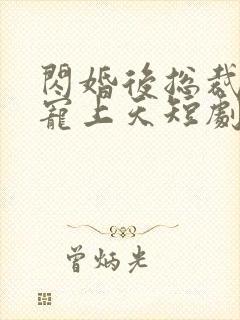 閃婚後総裁
寵上天短劇
曾炳光